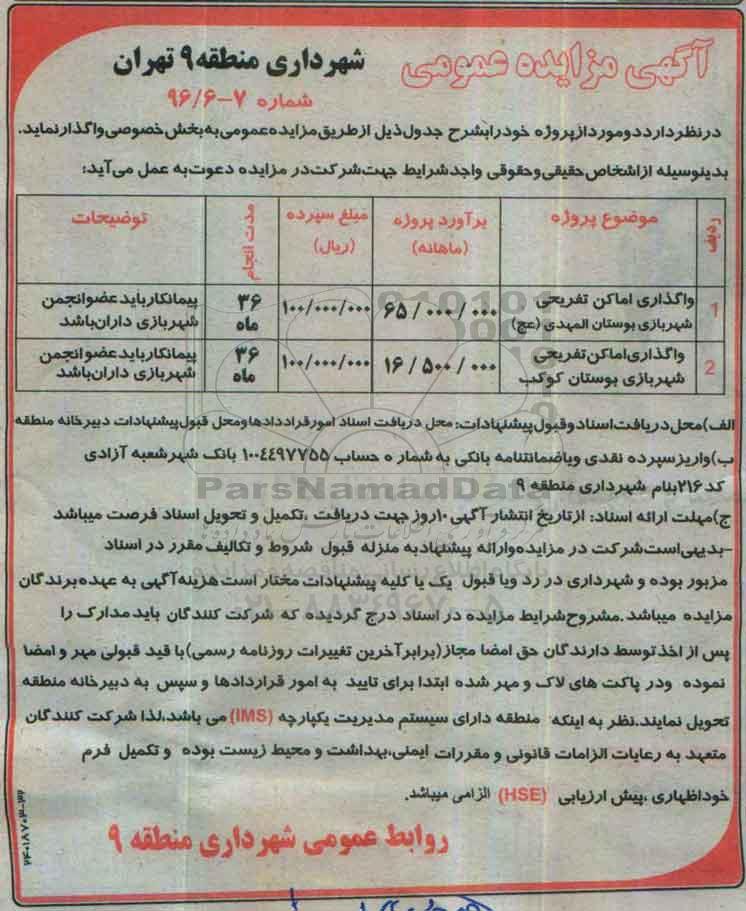 آگهی مزایده عمومی
شهرداری منطقه ۹ تهران
شماره ۷-۹۶/۶
درنظردارددوموردازپروژه خودرابشرح جدول ذیل ازطریق مزایده عمومی به بخش خصوصی واگذارنماید.
بدینوسیله ازاشخاص حقیقی وحقوقی واجدشرایط جهت شرکت در مزایده دعوت به عمل می آید:
ردیف موضوع پروژه برآورد پروژه (ماهانه) مبلغ سپرده (ریال) مدت انجام توضیحات
1 واگذاری اماکن تفریحی شهربازی بوستان المهدی (عج) ۶۵/۰۰۰/۰۰۰ ۱۰۰/۰۰۰/۰۰۰ ۳۶ ماه پیمانکارباید عضوانجمن شهربازی داران باشد
2 واگذاری اماکن تفریحی شهربازی بوستان کوکب ۱۶/۵۰۰/۰۰۰ ۱۰۰/۰۰۰/۰۰۰ ۳۶ ماه پیمانکارباید عضوانجمن شهربازی داران باشد
الف)محل دریافت اسنادوقبول پیشنهادات: محل دریافت اسناد امورقراددادهاومحل قبول پیشنهادات دبیرخانه منطقه
ب)واریزسپرده نقدی ویاضمانتنامه بانکی به شماره حساب ۱۰۰۴۴۹۷۷۵۵ بانک شهرشعبه آزادی
کد ۲۱۶بنام شهرداری منطقه ۹
ParsNamadData
ج)مهلت ارائه اسناد: ازتاریخ انتشار آگهی ۱۰روز جهت دریافت ،تکمیل و تحویل اسناد فرصت میباشد
-بدیهی است شرکت در مزایده وارائه پیشنهادبه منزله قبول شروط و تکالیف مقرر در اسناد
مزبور بوده و شهرداری در رد ویا قبول یک یا کلیه پیشنهادات مختار است هزینه آگهی به عهده برندگان
مزایده میباشد .مشروح شرایط مزایده در اسناد درج گردیده که شرکت کنندگان باید مدارک را
پس از اخذ توسط دارندگان حق امضا مجاز(برابرآخرین تغییرات روزنامه رسمی)با قید قبولی مهر و امضا
نموده ودر پاکت های لاک و مهر شده ابتدا برای تایید به امور قراردادها و سپس به دبیرخانه منطقه
تحویل نمایند.نظر به اینکه منطقه دارای سیستم مدیریت یکپارچه (IMS) می باشد،لذا شرکت کنندگان
متعهد به رعایات الزامات قانونی و مقررات ایمنی،بهداشت و محیط زیست بوده و تکمیل فرم
خوداظهاری ،پیش ارزیابی (HSE) الزامی میباشد.
روابط عمومی شهرداری منطقه ۹